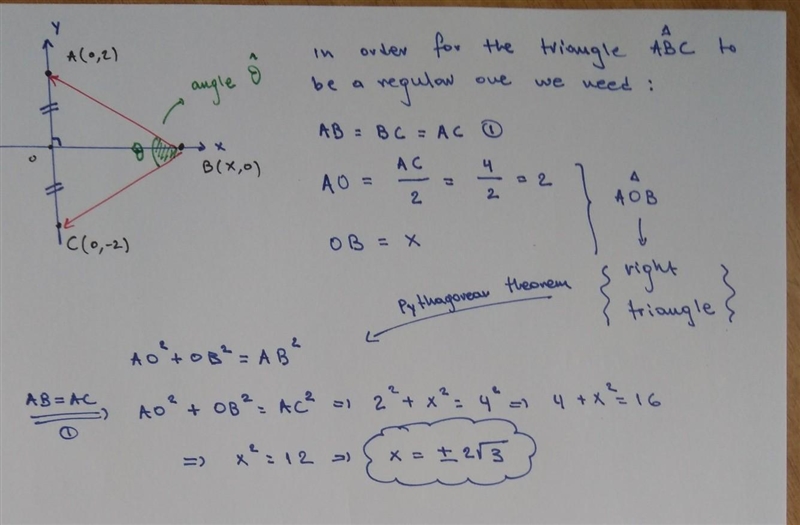 Y
A(0,2)
angle θ̂
θ
x
O
B(x,0)
C(0,-2)
in order for the triangle AB̂C to
be a regular one we need :
AB = BC = AC ①
AO = AC/2 = 4/2 = 2
OB = x
AÔB
right
triangle
Pythagorean theorem
AO² + OB² = AB²
AB=AC ① ⇒ AO² + OB² = AC² ⇒ 2² + x² = 4² ⇒ 4 + x² = 16
⇒ x² = 12 ⇒ x = ± 2√3